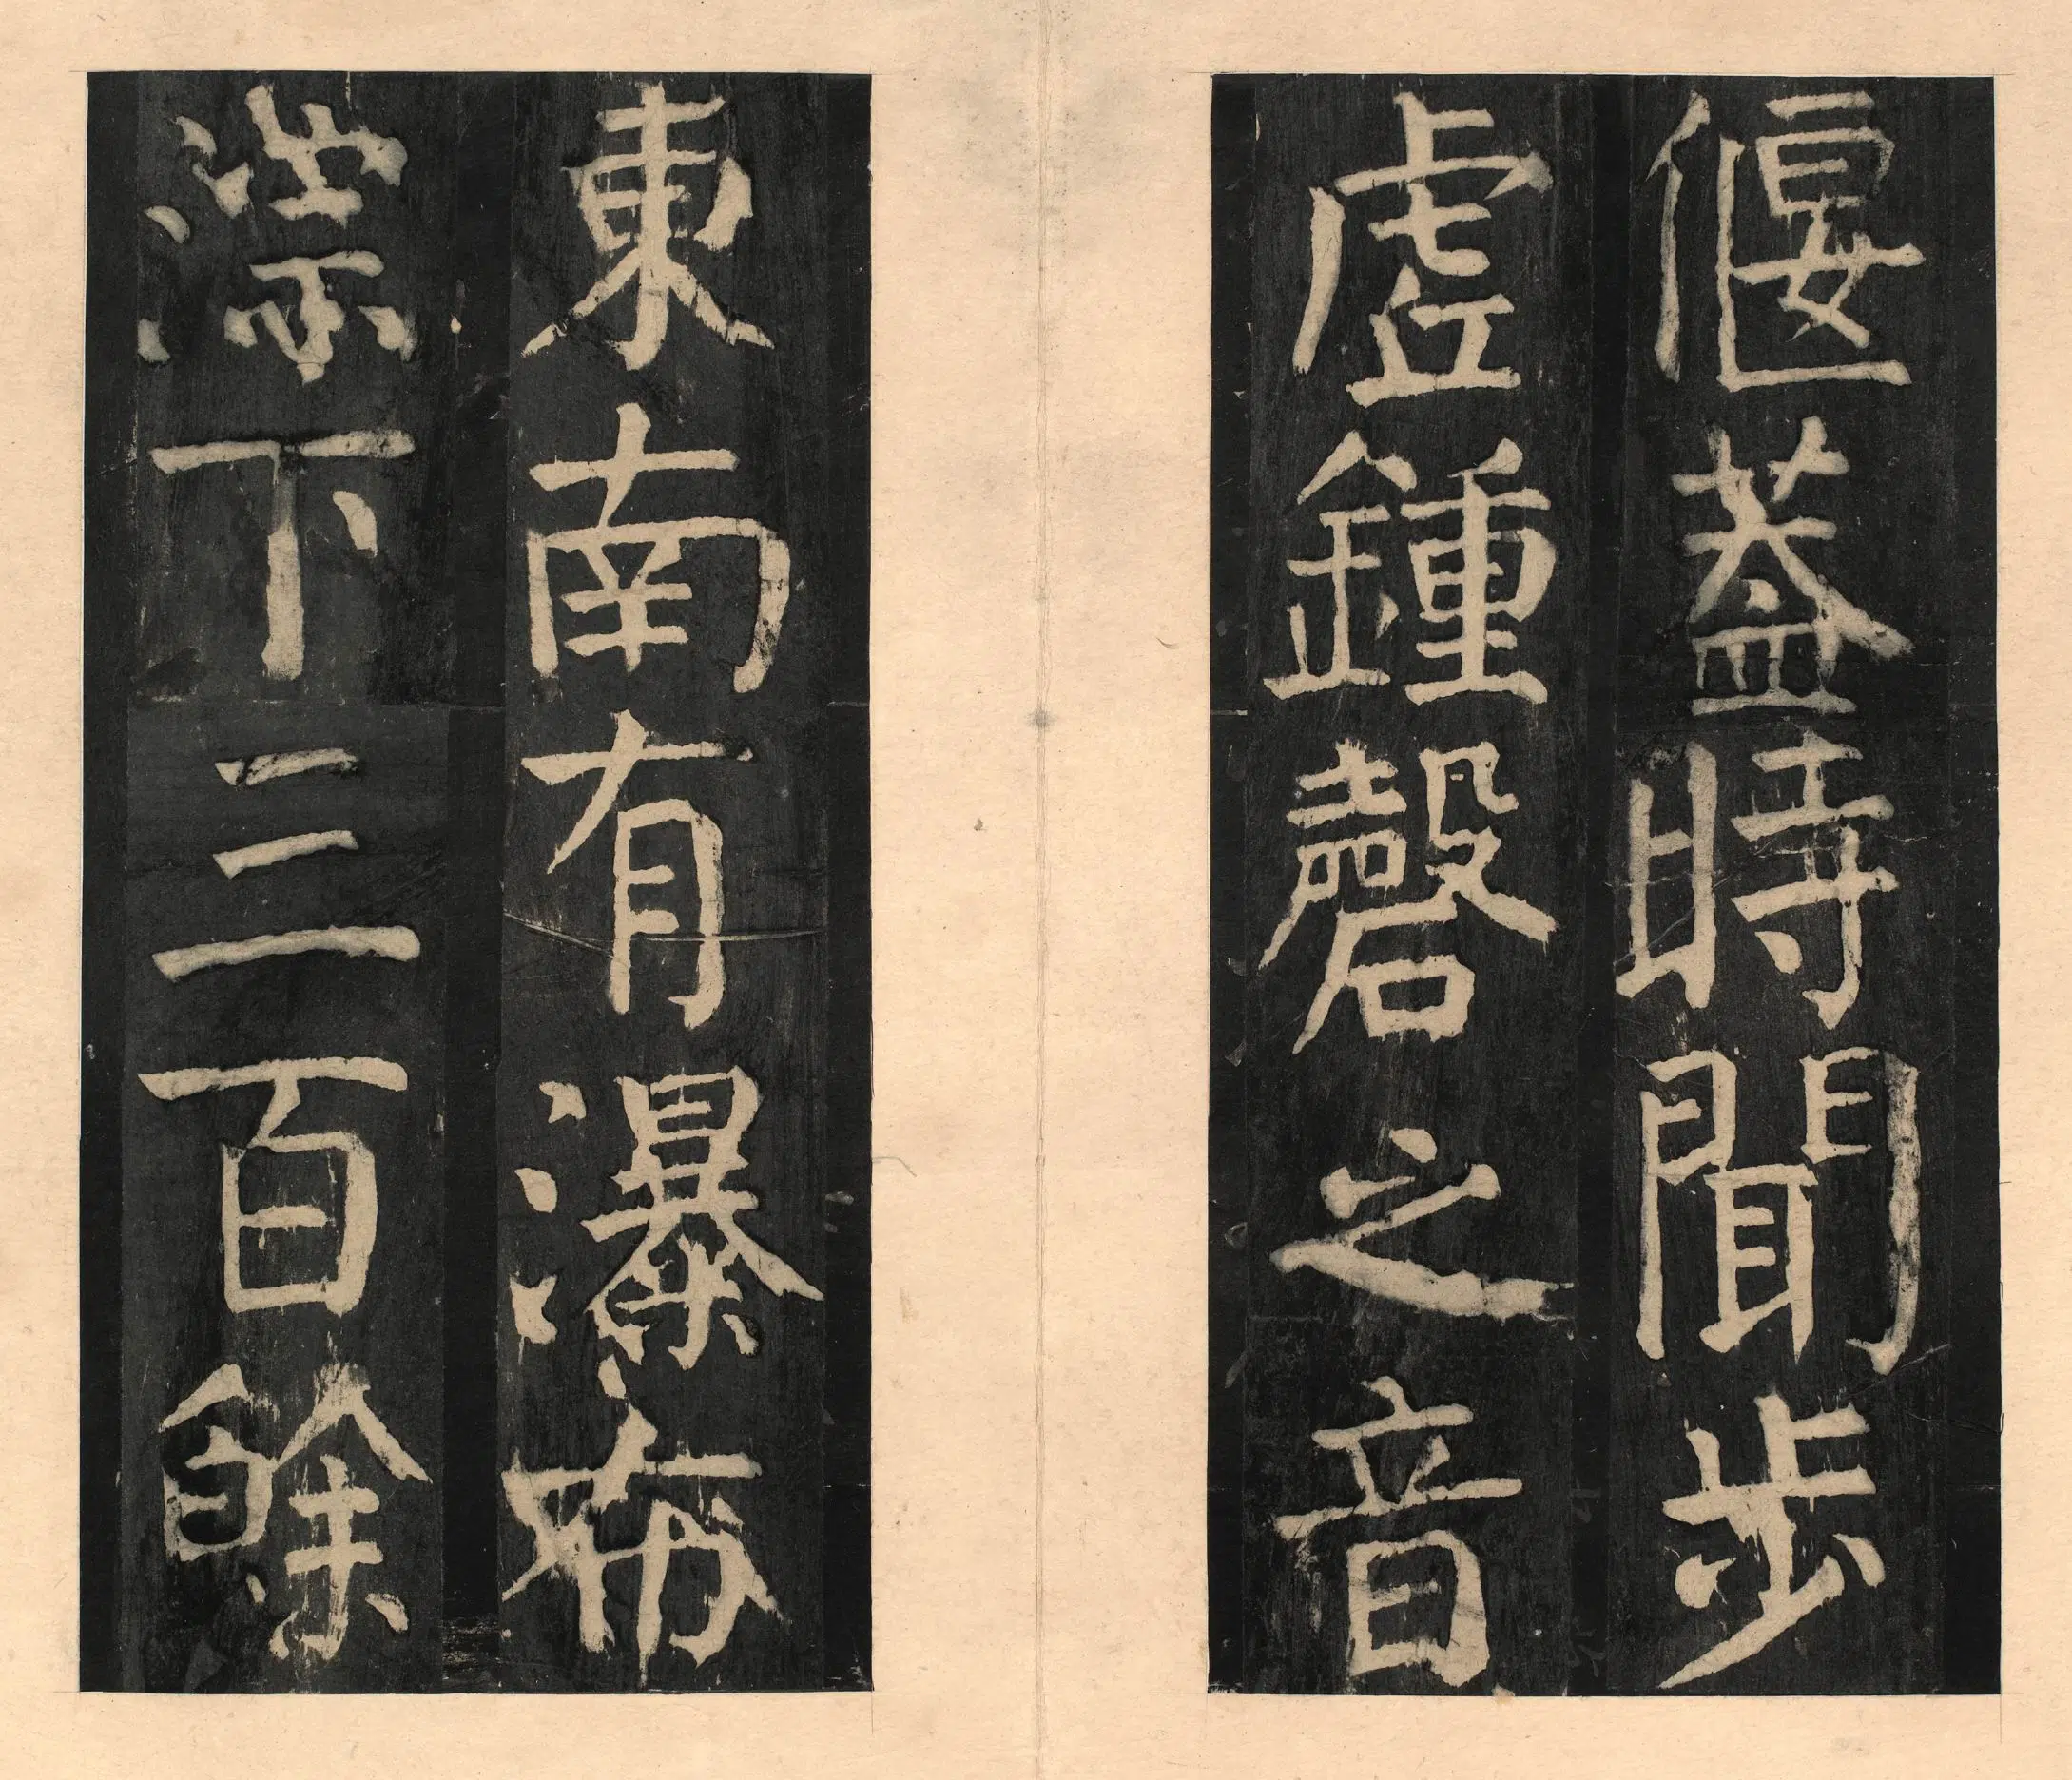 偃葢時聞步
虛鍾磬之音
東南有瀑布
漴下三百餘